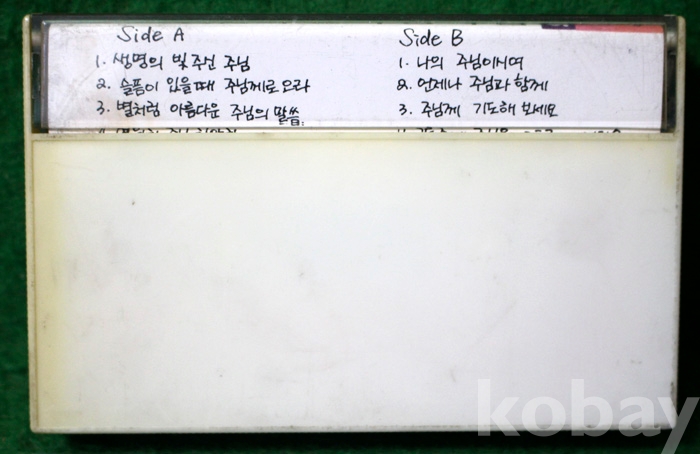 Side A
1. 생명의 빛 주신 주님
2. 슬픔이 있을때 주님께로 오라
3. 별처럼 아름다운 주님의 말씀
Side B
1. 나의 주님이시여
2. 언제나 주님과 함께
3. 주님께 기도해 보세요
kobay